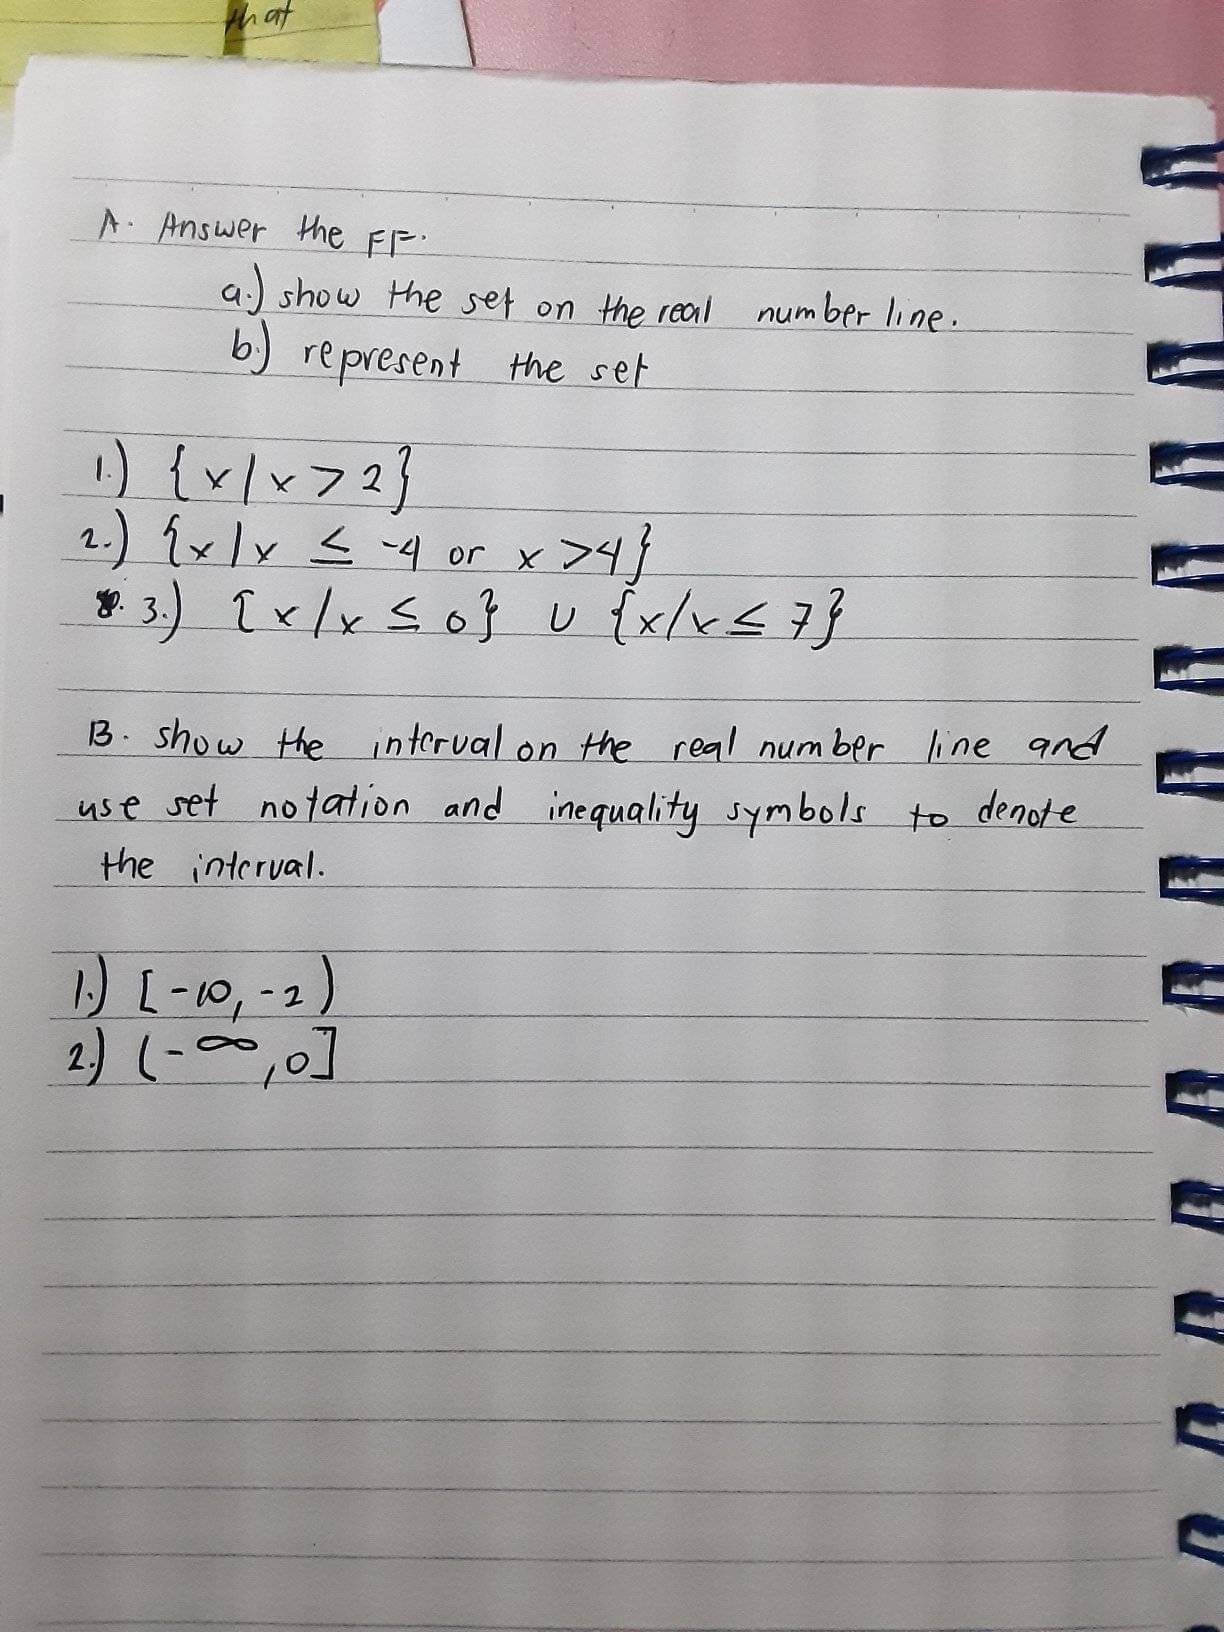 that
A. Answer the FF.
a.) show the set on the real number line.
b.) represent the set
1.) {x/x > 2}
2.) {x/x ≤ -4 or x >4}
3.) {x/x ≤ 0} ∪ {x/x ≤ 7}
B. show the interval on the real number line and
use set notation and inequality symbols to denote
the interval.
1.) [-10, -2)
2.) (-∞, 0]